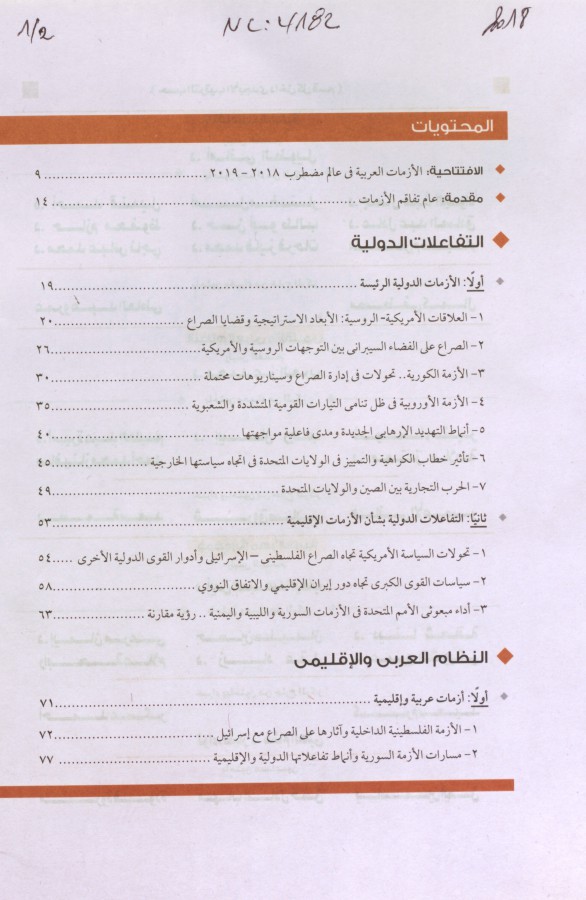 1/2
NC: 4182
2018
المحتويات
الافتتاحية: الأزمات العربية فى عالم مضطرب ٢٠١٨ - ٢٠١٩ ........ ٩
مقدمة: عام تفاقم الأزمات ........ ١٤
التفاعلات الدولية
أولًا: الأزمات الدولية الرئيسة ........ ١٩
١- العلاقات الأمريكية- الروسية: الأبعاد الاستراتيجية وقضايا الصراع ........ ٢٠
٢- الصراع على الفضاء السيبرانى بين التوجهات الروسية والأمريكية ........ ٢٦
٣- الأزمة الكورية.. تحولات فى إدارة الصراع وسيناريوهات محتملة ........ ٣٠
٤- الأزمة الأوروبية فى ظل تنامى التيارات القومية المتشددة والشعبوية ........ ٣٥
٥- أنماط التهديد الإرهابى الجديدة ومدى فاعلية مواجهتها ........ ٤٠
٦- تأثير خطاب الكراهية والتمييز فى الولايات المتحدة فى اتجاه سياستها الخارجية ........ ٤٥
٧- الحرب التجارية بين الصين والولايات المتحدة ........ ٤٩
ثانيًا: التفاعلات الدولية بشأن الأزمات الإقليمية ........ ٥٣
١- تحولات السياسة الأمريكية تجاه الصراع الفلسطينى – الإسرائيلى وأدوار القوى الدولية الأخرى ..... ٥٤
٢- سياسات القوى الكبرى تجاه دور إيران الإقليمي والاتفاق النووي ........ ٥٨
٣- أداء مبعوثى الأمم المتحدة فى الأزمات السورية والليبية واليمنية .. رؤية مقارنة ........ ٦٣
النظام العربى والإقليمى
أولًا: أزمات عربية وإقليمية ........ ٧١
١- الأزمة الفلسطينية الداخلية وآثارها على الصراع مع إسرائيل ........ ٧٢
٢- مسارات الأزمة السورية وأنماط تفاعلاتها الدولية والإقليمية ........ ٧٧